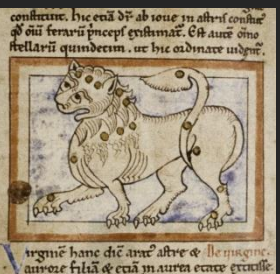 constituit. hic etiã dr ab ioue in astris constitut'
qd oĩu ferarũ p̃nceps existimat̃. Est autẽ oĩno
stellarũ quindecim. ut hic ordinate uident̃.
Virginẽ hanc diẽ arat' astre &
De uirgine.
auroze filiã & etiã in aurea